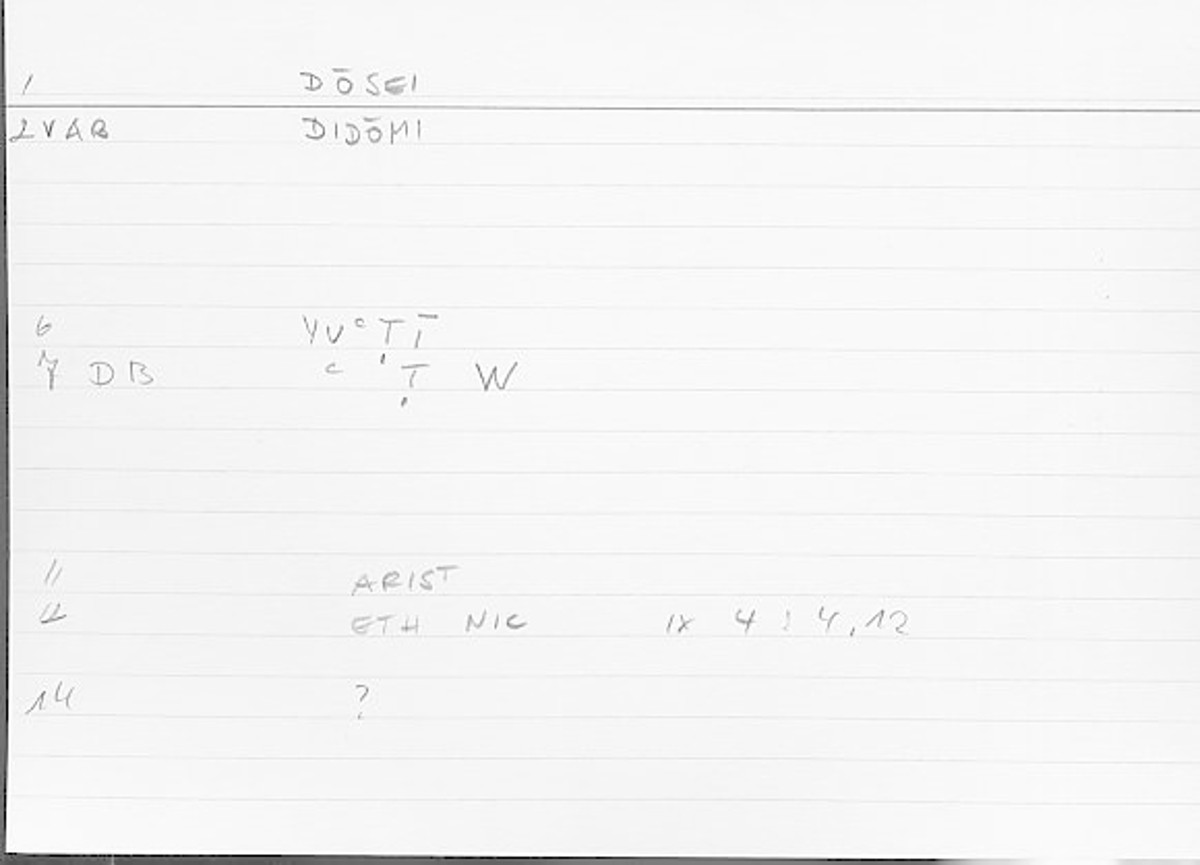 1 DŌSEI
2 VAB DIDŌMI
6
7 DB W
11 ARIST
12 ETH NIC IX 4 : 4,12
14 ?